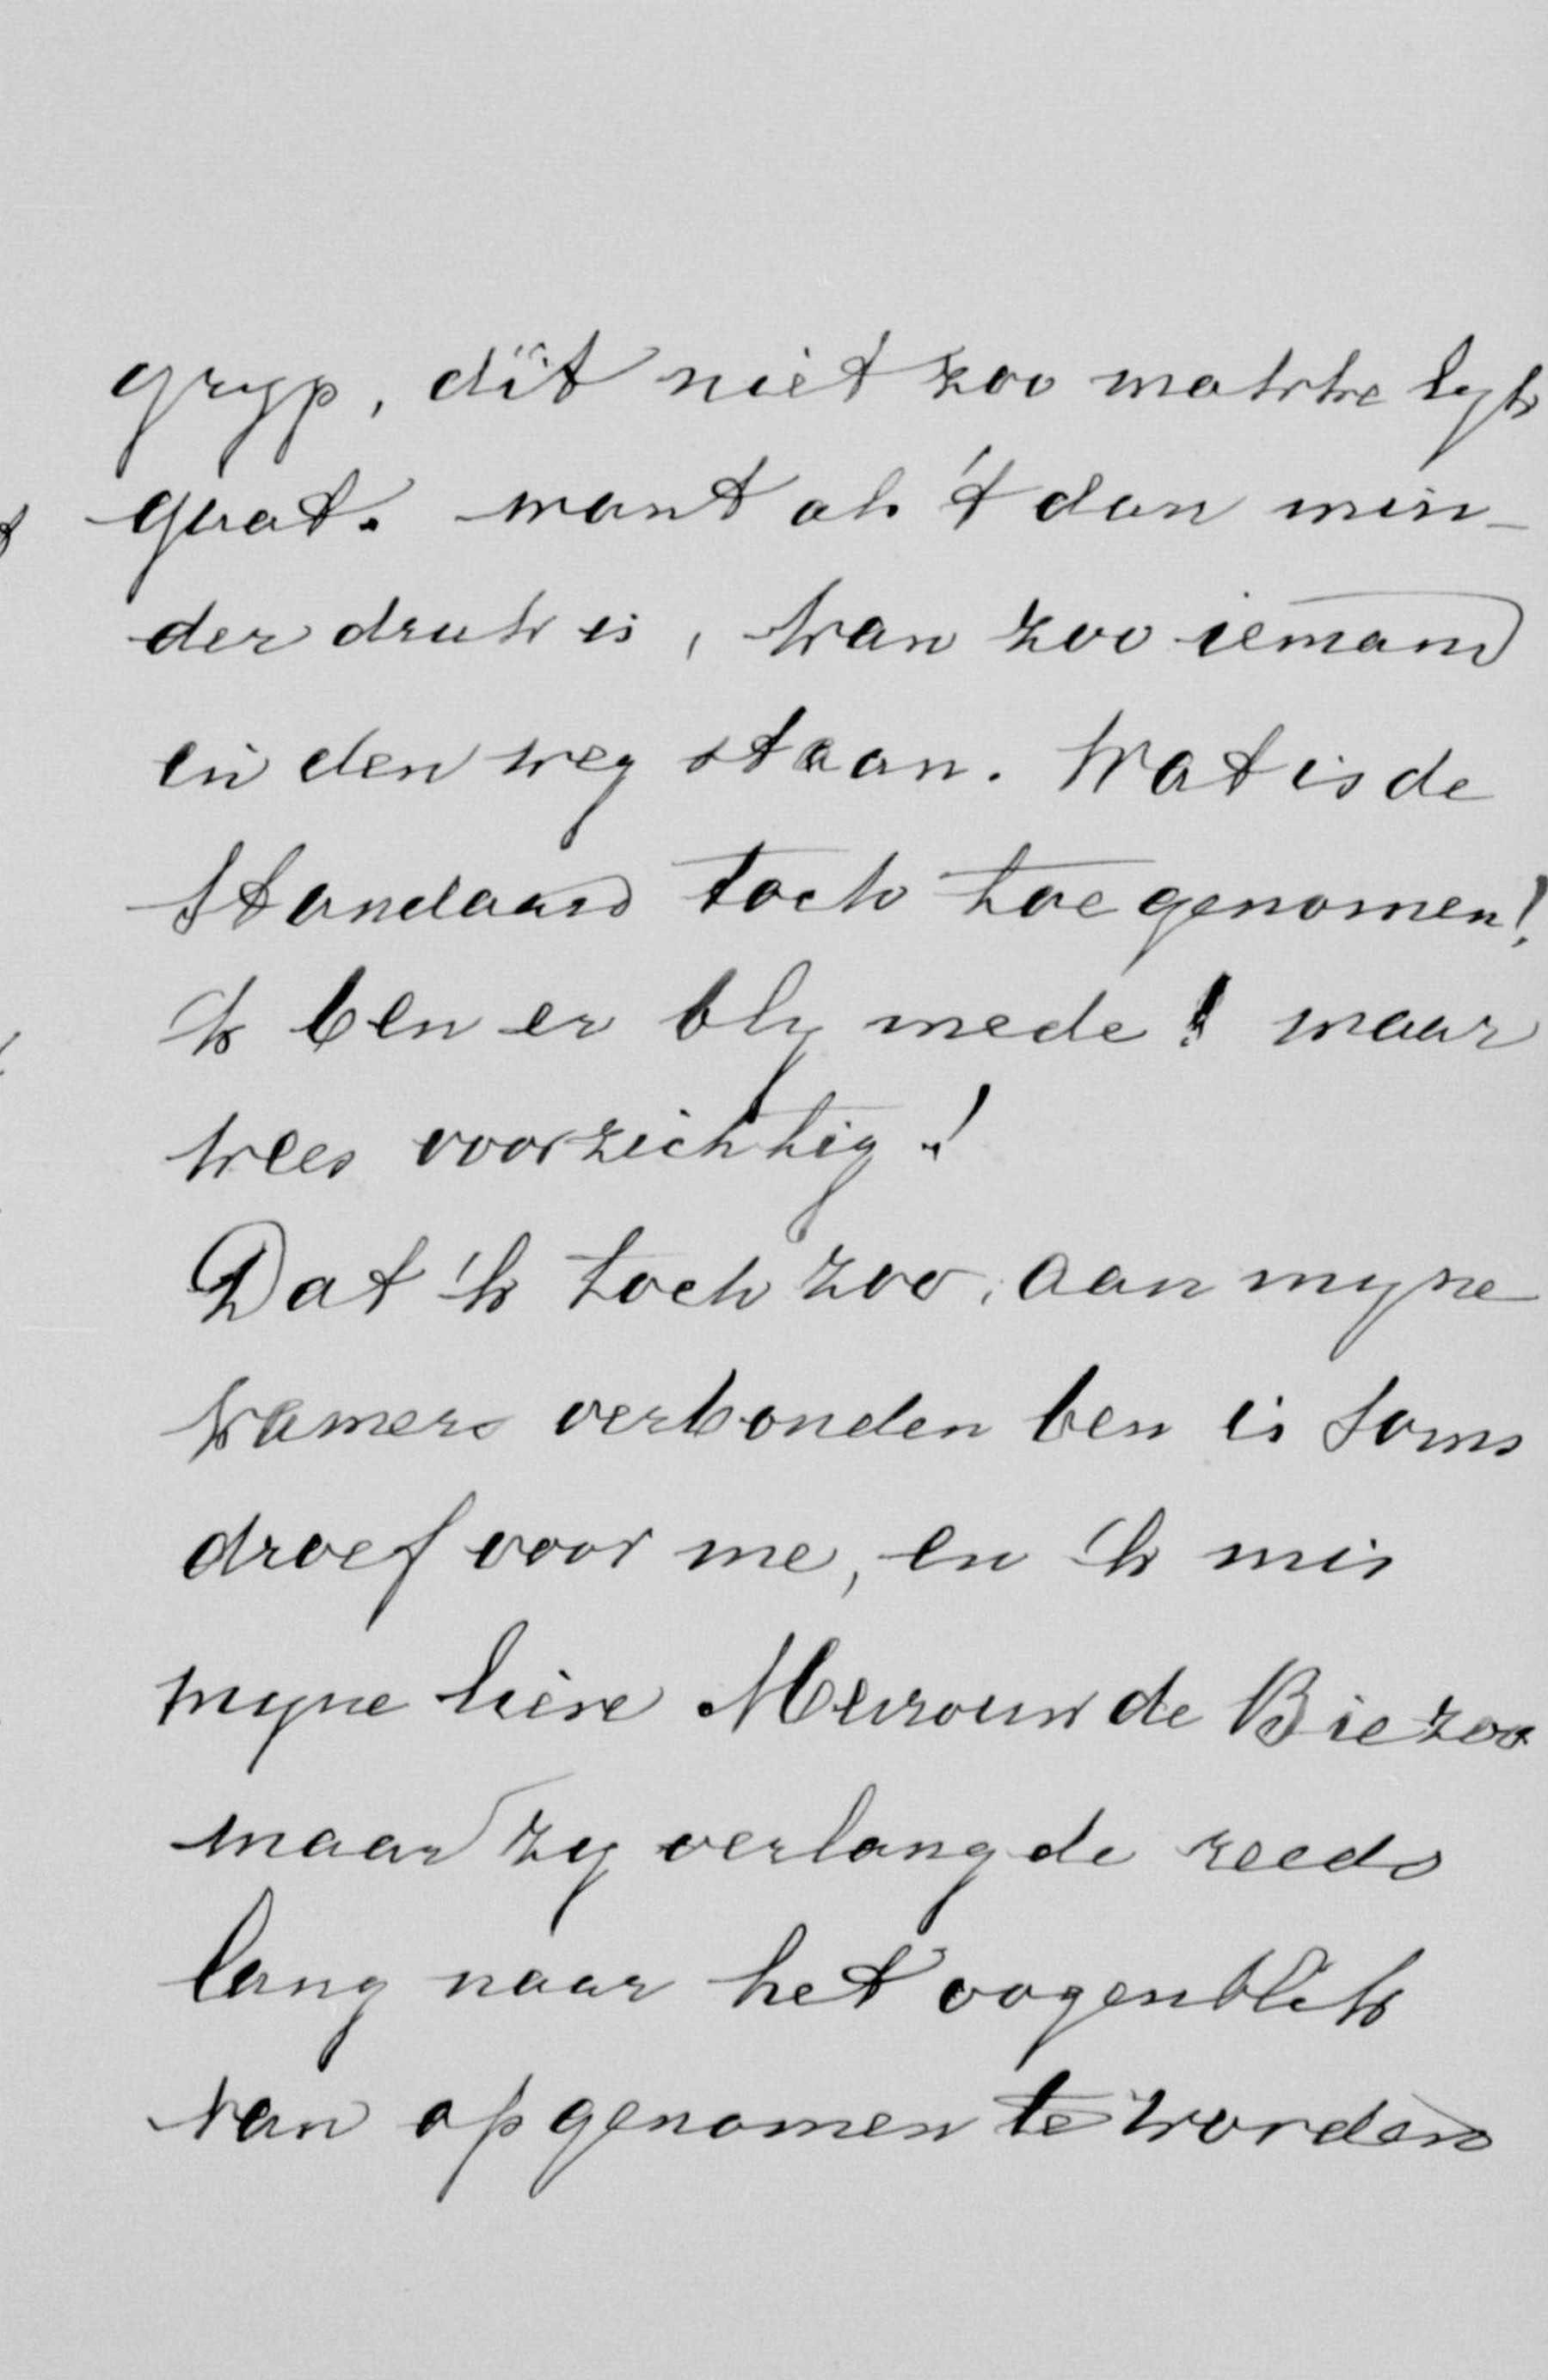 gryp, dit niet zoo makkelyk
gaat. want als 't dan min-
der druk is, kan zoo iemand
in den weg staan. Wat is de
Standaard toch toegenomen!
Ik ben er bly mede! maar
wees voorzichtig!
Dat 'k toch zoo, aan myne
kamers verbonden ben is soms
droef voor me, en Ik mis
myne lieve Mevrouw de Bie zoo
maar zy verlangde reeds
lang naar het oogenblik
van opgenomen te worden